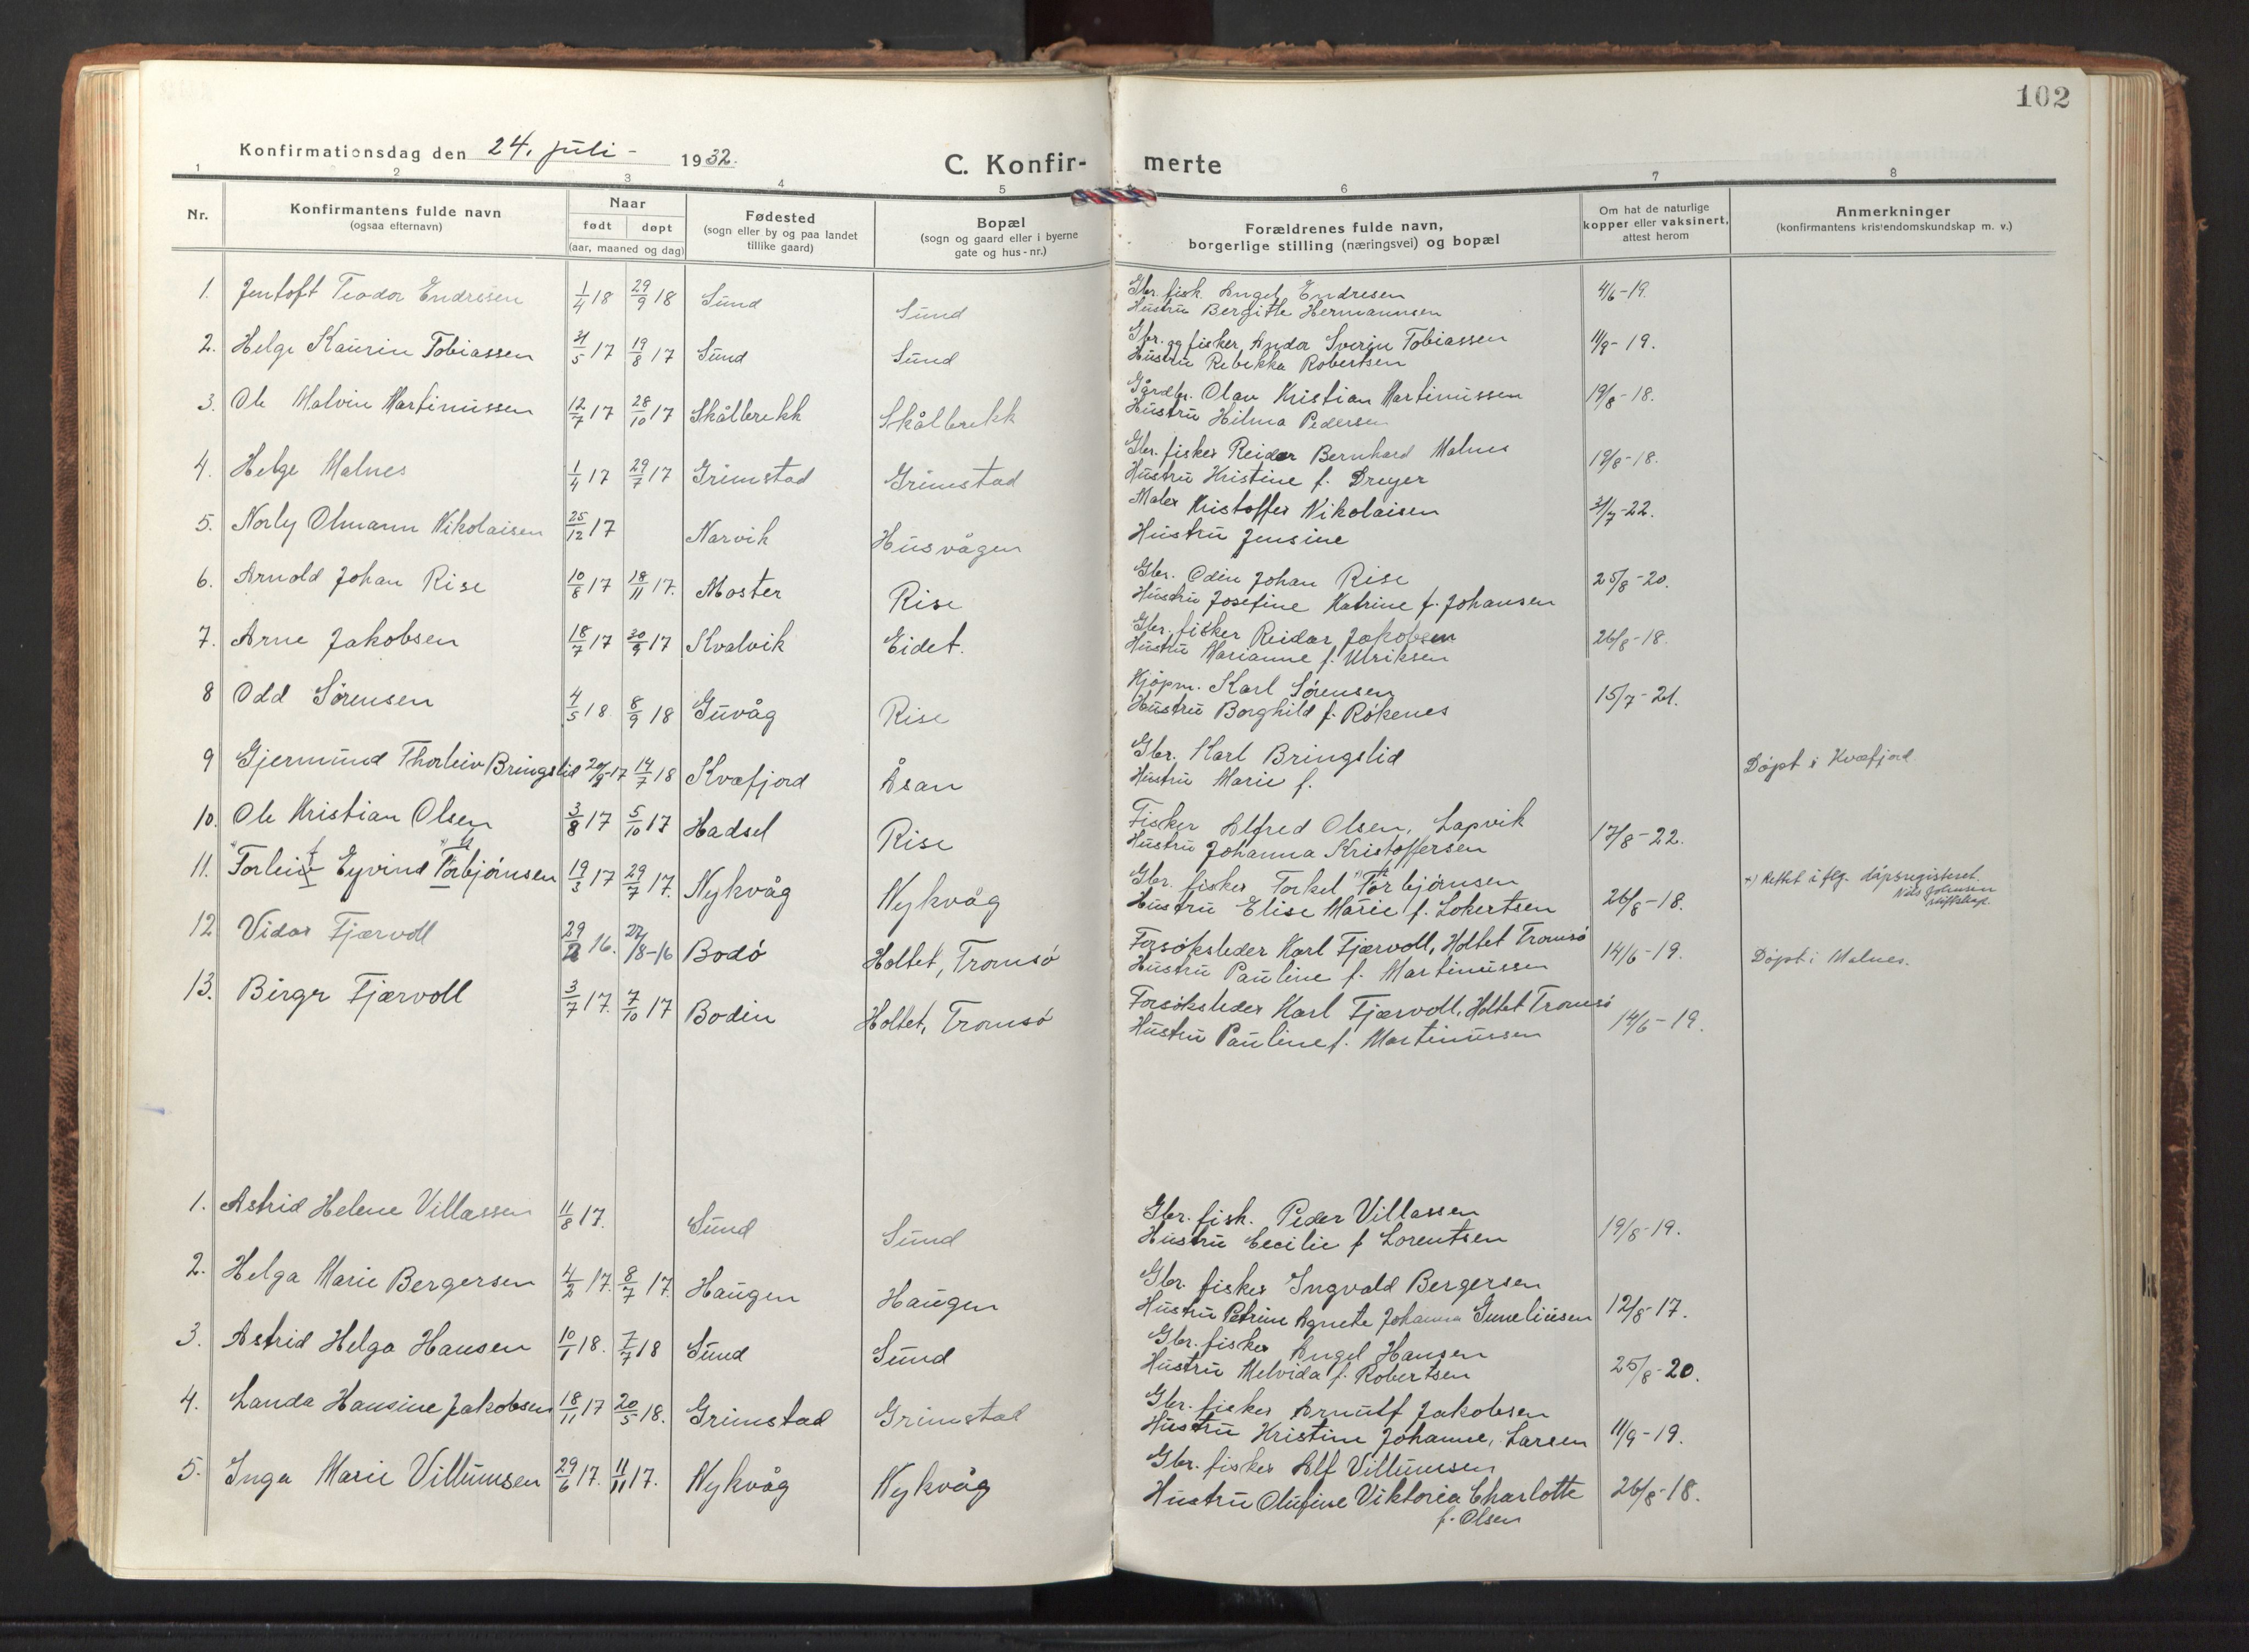 102
Konfirmationsdag den 24. juli - 1932.
C. Konfir-merte
1 2 3 4 5 6 7 8
Nr.
Konfirmantens fulde navn
(ogsaa efternavn)
Naar
født døpt
(aar, maaned og dag)
Fødested
(sogn eller by og paa landet
tillike gaard)
Bopæl
(sogn og gaard eller i byerne
gate og hus-nr.)
Forældrenes fulde navn,
borgerlige stilling (næringsvei) og bopæl
Om hat de naturlige
kopper eller vaksinert,
attest herom
Anmerkninger
(konfirmantens kristendomskundskap m. v.)
1. Jentoft Teodor Endresen 1/4 18 29/9 18 Sund Sund Gbr. fisk. Angel Endresen 4/6-19.
Hustru Bergitte Hermannsen
2. Helge Kaurin Tobiassen 31/5 17 19/8 17 Sund Sund Gbr. og fisker Andor Sverin Tobiassen 11/9-19.
Hustru Rebekka Robertsen
3. Ole Malvin Martinussen 12/7 17 28/10 17 Skålbrekk Skålbrekk Gårdbr. Olav Kristian Martinussen 19/8-18.
Hustru Hilma Pedersen
4. Helge Malnes 1/4 17 29/7 17 Grimstad Grimstad Gbr. fisker Reidar Bernhard Malnes 19/8-18.
Hustru Kristine f. Dreyer
5. Norly Olmann Nikolaisen 25/12 17 Narvik Husvågen Maler Kristoffer Nikolaisen 31/7-22.
Hustru Jensine
6. Arnold Johan Rise 10/8 17 18/11 17. Moster Rise Gbr. Odin Johan Rise 25/8-20.
Hustru Josefine Katrine f. Johansen
7. Arne Jakobsen 18/7 17 30/9 17 Kvalvik Eidet. Gbr. fisker Reidar Jakobsen 26/8-18.
Hustru Marianne f. Ulriksen
8 Odd Sørensen 4/5 18 8/9 18 Guvåg Rise Kjøpm. Karl Sørensen 15/7-21.
Hustru Borghild f. Røkenes
9 Gjermund Thorleiv Bringslid 20/9-17 14/7 18 Kvæfjord Åsan Gbr. Karl Bringslid Døpt i Kvæfjord
Hustru Marie f.
10. Ole Kristian Olsen 3/8 17 5/10 17 Hadsel Rise Fisker Alfred Olsen, Lapvik 17/8-22.
Hustru Johanna Kristoffersen
11. Torleif Eyvind Torbjørnsen 19/3 17 29/7 17. Nykvåg Nykvåg Gbr. fisker Torkel Torbjørnsen 26/8-18. x) Rettet i flg. dåpsregisteret.
Hustru Elise Marie f. Lokertsen Nils Johnsen
12 Vidar Fjærvoll 29/2 16. 27/8-16 Bodø Holtet, Tromsø Forsøksleder Karl Fjærvoll, Holtet Tromsø 14/6-19. Døpt i Malnes.
Hustru Pauline f. Martinussen
13. Birger Fjærvoll 3/7 17. 7/10 17 Bodin Holtet, Tromsø Forsøksleder Karl Fjærvoll, Holtet Tromsø 14/6-19.
Hustru Pauline f. Martinussen
1. Astrid Helene Villassen 11/8 17. Sund Sund Gbr. fisk. Peder Villassen 19/8-19.
Hustru Cecilie f Lorentsen
2. Helga Marie Bergersen 4/2 17. 8/7 17. Haugen Haugen Gbr. fisker Ingvald Bergersen 12/8-17.
Hustru Petrine Agnete Johanna
3. Astrid Helga Hansen 10/1 18. 7/7 18 Sund Sund Gbr. fisker Angel Hansen 25/8-20.
Hustru Melvida f. Robertsen
4. Landa Hansine Jakobsen 18/11 17 20/5 18. Grimstad Grimstad Gbr. fisker Arnulf Jakobsen 11/9-19.
Hustru Kristine Johanne, Larsen
5. Inga Marie Villumsen 29/6 17. 11/11 17. Nykvåg Nykvåg Gbr. fisker Alf Villumsen 26/8-18.
Hustru Olufine Viktoria Charlotte
f. Olsen